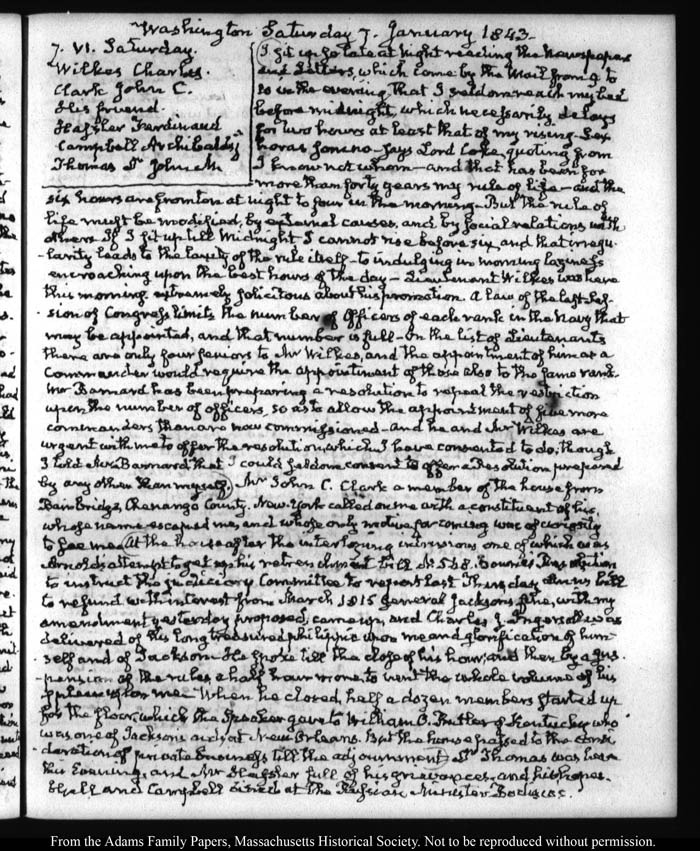 Washington Saturday 7. January 1843.
7. VI. Saturday.
Wilkes Charles.
Clark John C.
His friend.
Hassler Ferdinand
Campbell Archibald
Thomas Dr John M
I sit up so late at night reading the Newspapers
and Letters, which come by the Mail from 9 to
10 in the evening, that I seldom reach my bed
before midnight, which necessarily delays
for two hours at least that of my rising. Sex
horas somno—says Lord Coke, quoting from
I know not whom—and that has been for
more than forty years my rule of life—and the
six hours are from ten at night to four in the morning. But the rule of
life must be modified, by external causes, and by social relations with
others. If I sit up till midnight I cannot rise before six, and that irregu-
larity leads to the laxity of the rule itself—to indulging in morning laziness
encroaching upon the best hours of the day—Lieutenant Wilkes was here
this morning extremely solicitous about his promotion. A law of the last Ses-
sion of Congress limits the number of Officers of each rank in the Navy that
may be appointed, and that number is full—On the list of Lieutenants
there are only four seniors to Mr Wilkes, and the appointment of him as a
Commander would require the appointment of those also to the same rank.
Mr Barnard has been preparing a resolution to repeal the restriction
upon the number of officers, so as to allow the appointment of five more
commanders than are now commissioned—and he and Mr Wilkes are
urgent with me to offer the resolution, which I have consented to do; though
I told Mr Barnard that I could seldom consent to offer a Resolution prepared
by any other than myself. Mr John C. Clark a member of the house from
Bainbridge, Chenango County, New-York called on me with a constituent of his,
whose name escaped me, and whose only motive for coming was of curiosity
to see me. At the house after the interloping intrusions one of which was
Arnold's attempt to get up his retrenchment bill No. 548. Resolution
to instruct the judiciary Committee to report last Thursday bill
to refund with interest from March 1815 General Jackson's fine, with my
amendment yesterday proposed, came up, and Charles J. Ingersoll was
delivered of his long treasured philippic upon me and glorification of him-
self and of Jackson. He spoke till the close of his hour, and then by a sus-
pension of the rules a half hour more to vent the whole volume of his
spleen upon me—When he closed, half a dozen members started up
for the floor, which the Speaker gave to William O. Butler of Kentucky who
was one of Jackson's aids at New Orleans. But the house passed to the consi-
deration of private business till the adjournment. Dr Thomas was here
this Evening, and Mr Hassler full of his grievances, and his hopes.
and Campbell dined at the Russian Minister Bodisco's.
From the Adams Family Papers, Massachusetts Historical Society. Not to be reproduced without permission.